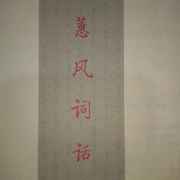 蕙风词话